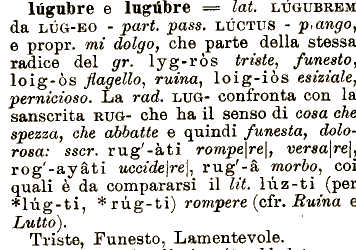 lúgubre e lugúbre = lat. LÚGUBREM
da LÚG-EO - part. pass. LÚCTUS - piango,
e propr. mi dolgo, che parte della stessa
radice del gr. lyg-ròs triste, funesto,
loig-òs flagello, ruina, loig-iòs esiziale,
pernicioso. La rad. LUG- confronta con la
sanscrita RUG- che ha il senso di cosa che
spezza, che abbatte e quindi funesta, dolo-
rosa: sscr. rug'-àti rompe[re], versa[re],
rog'-ayâti uccide[re], rug'-â morbo, coi
quali è da compararsi il lit. lúz-ti (per
*lúg-ti, *rúg-ti) rompere (cfr. Ruina e
Lutto).
Triste, Funesto, Lamentevole.